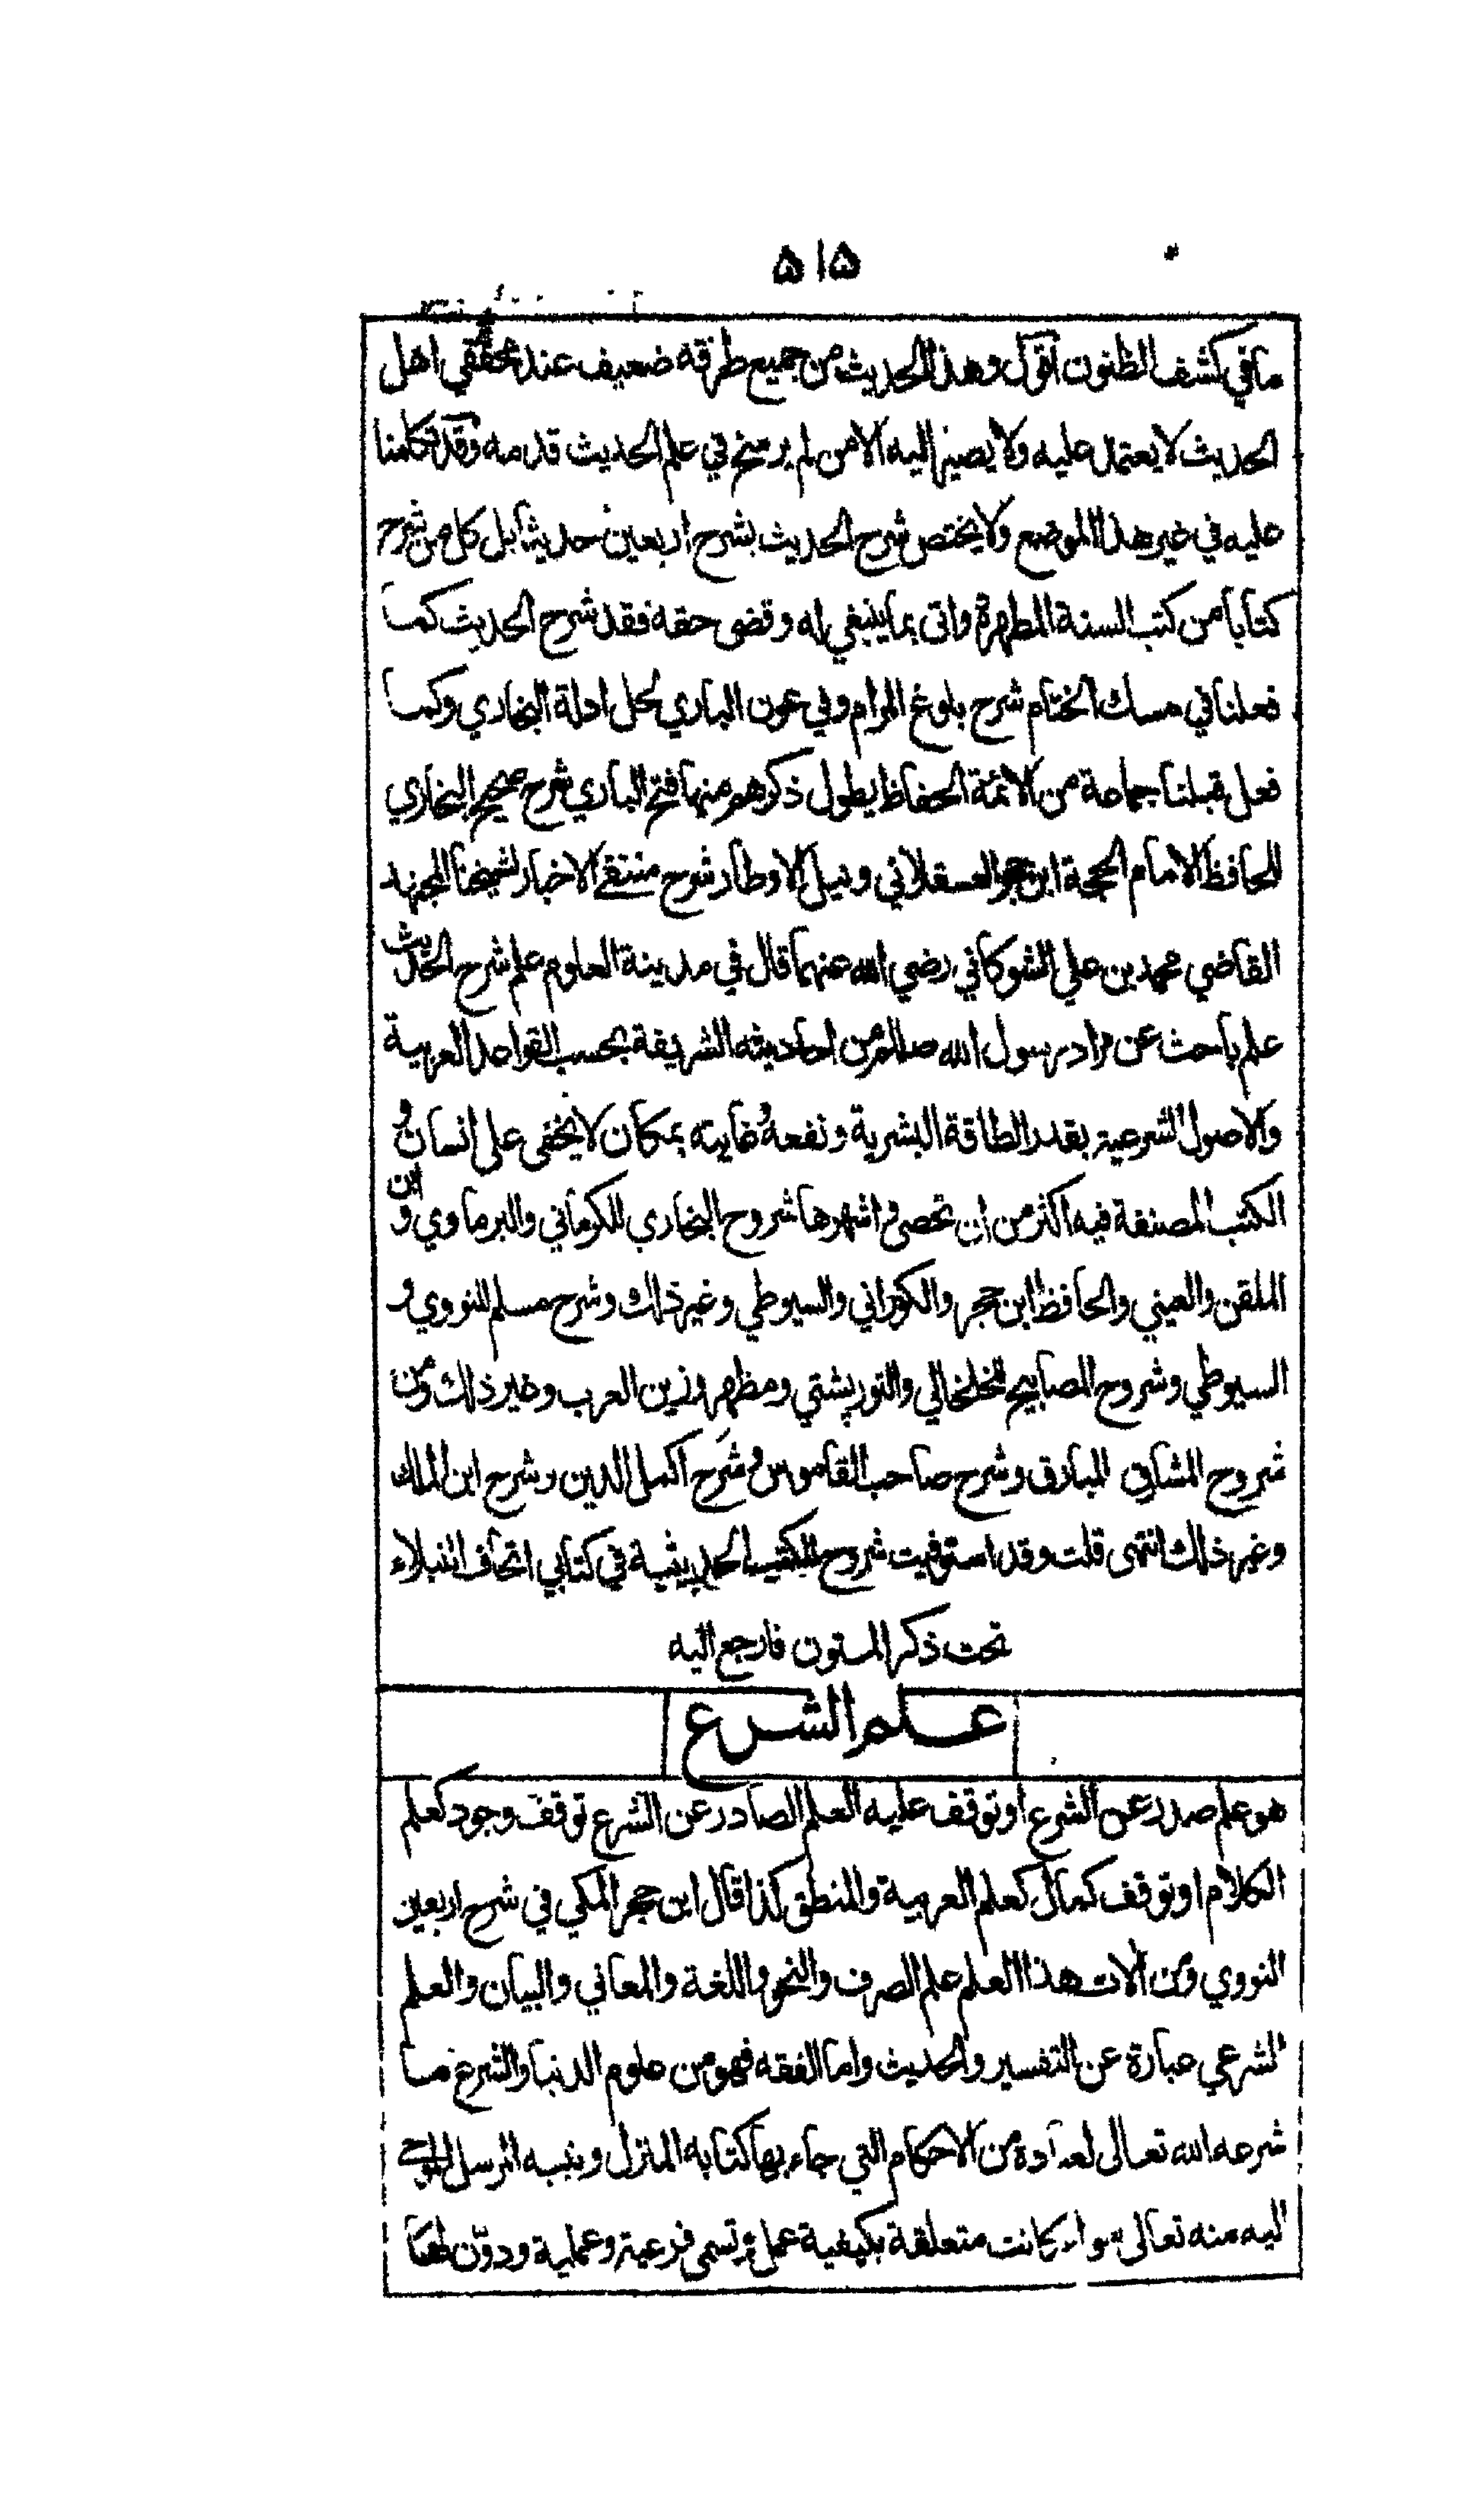 ۵۱۵
ما في كشف الظنون اقول وهذا الحديث من جميع طرقه ضعيف عند محققي اهل
الحديث لا يعتمد عليه ولا يصير اليه الا من لم يرسخ في علم الحديث قدمه وقد تكلمنا
عليه في غير هذا الموضع ولا يختص شرح الحديث بشرح اربعين حديثا بل كل من شرح
كتابا من كتب السنة المطهرة واتى بما ينبغي له وقضى حقه فقد شرح الحديث كما
فعلنا في مسك الختام شرح بلوغ المرام وفي عون الباري لحل ادلة البخاري وكما
فعل قبلنا جماعة من الائمة الحفاظ يطول ذكرهم منها فتح الباري شرح صحيح البخاري
للحافظ الامام الحجة ابن حجر العسقلاني ونيل الاوطار شرح منتقى الاخبار لشيخنا المجتهد
القاضي محمد بن علي الشوكاني رضي الله عنهما قال في مدينة العلوم علم شرح الحديث
علم باحث عن مراد رسول الله صللم من احاديثه الشريفة بحسب القواعد العربية
والاصول الشرعية بقدر الطاقة البشرية ونفعه وغايته بمكان لا يخفى على انسان و
الكتب المصنفة فيه اكثر من ان تحصى واشهرها شروح البخاري للكرماني والبرماوي وابن
الملقن والعيني والحافظ ابن حجر والكوراني والسيوطي وغير ذلك وشرح مسلم للنووي و
السيوطي وشروح المصابيح للخلخالي والتوربشتي ومظهر وزين العرب وغير ذلك ومن
شروح المشارق المبارق وشرح صاحب القاموس وشرح اكمل الدين وشرح ابن الملك
وغير ذلك انتهى قلت وقد استوفيت شروح الكتب الحديثية في كتابي اتحاف النبلاء
تحت ذكر المتون فارجع اليه
علم الشرع
هو علم صدر عن الشرع او توقف عليه العلم الصادر عن الشرع توقف وجود كعلم
الكلام او توقف كمال كعلم العربية والمنطق كذا قال ابن حجر المكي في شرح اربعين
النووي ومن آلات هذا العلم علم الصرف والنحو واللغة والمعاني والبيان والعلم
الشرعي عبارة عن التفسير والحديث واما الفقه فهو من علوم الدنيا والشرع ما
شرعه الله تعالى لعباده من الاحكام التي جاء بها كتابه المنزل ونبيه المرسل الموحى
اليه منه تعالى سواء كانت متعلقة بكيفية عمل وتسمى فرعية وعملية ودوّن لها